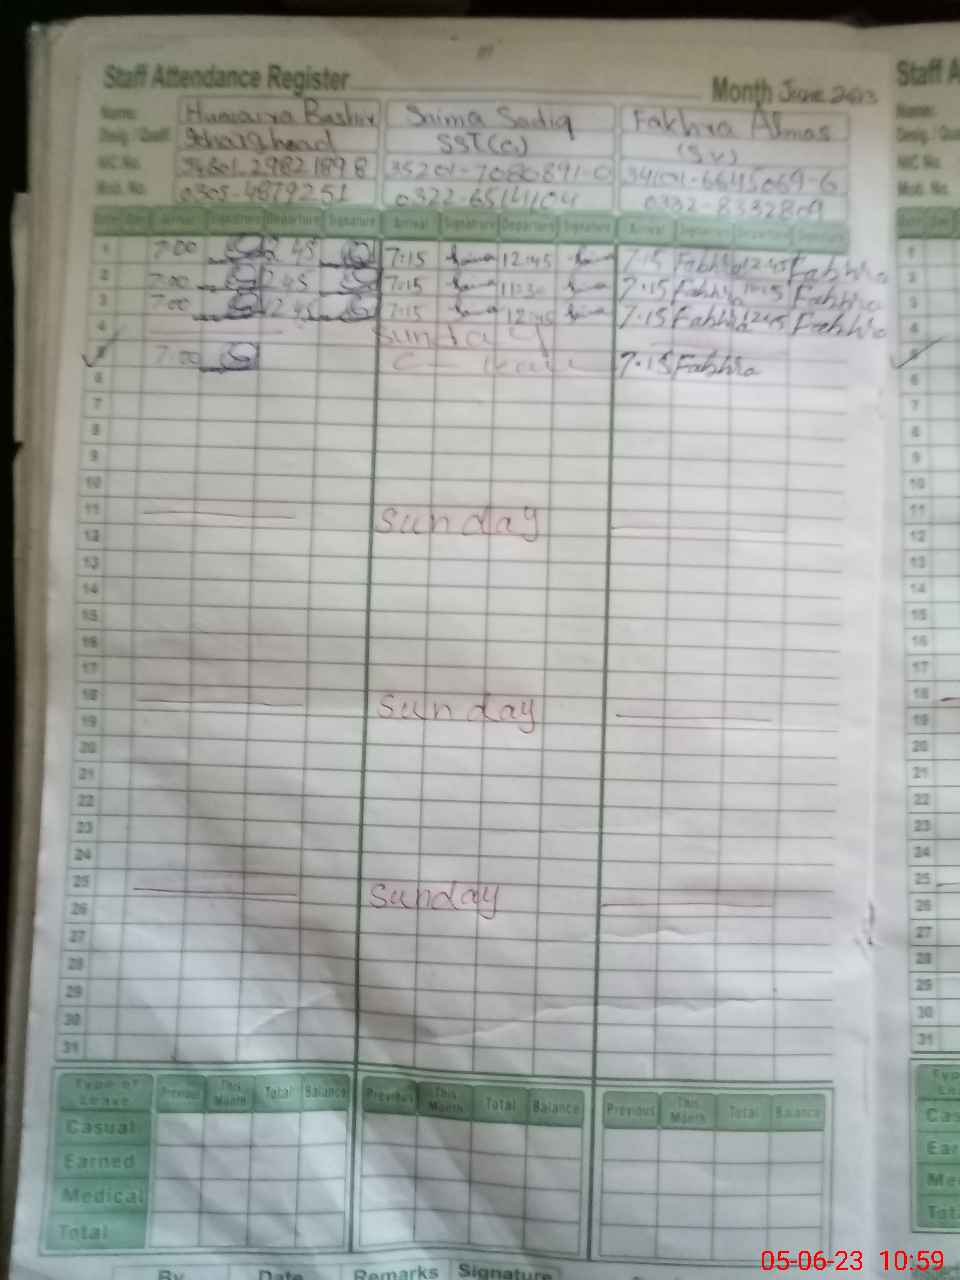 Staff Attendance Register
Month June 2023
Staff A
Name: Humaira Bashir Snima Sadiq Fakhra Almas
Desig. / Qualif. head SST(c) (S.V)
NIC No. 34601-2982189 8 35201-7080891-0 34101-6645069-6
Mob. No. 0305-4879251 0322-6514104 0332-8332809
Arrival Signature Departure Signature Arrival Signature Departure Signature Arrival Signature Departure Signature
1 7:00 12:45 7:15 12:45 7:15 Fakhra 12:45 Fakhra 1
2 7:00 12:45 7:15 11:30 7:15 Fakhra Fakhra 2
3 7:00 12:45 7:15 12:45 7:15 Fakhra 12:45 Fakhra 3
4 Sunday 4
5 7:00 7:15 Fakhra 5
6 6
7 7
8 8
9 9
10 10
11 Sunday 11
12 12
13 13
14 14
15 15
16 16
17 17
18 Sunday 18
19 19
20 20
21 21
22 22
23 23
24 24
25 Sunday 25
26 26
27 27
28 28
29 29
30 30
31 31
Type of Leave Previous This Month Total Balance Previous This Month Total Balance Previous This Month Total Balance
Casual Cas
Earned Ear
Medical Me
Total Tot
By Date Remarks Signature
05-06-23 10:59